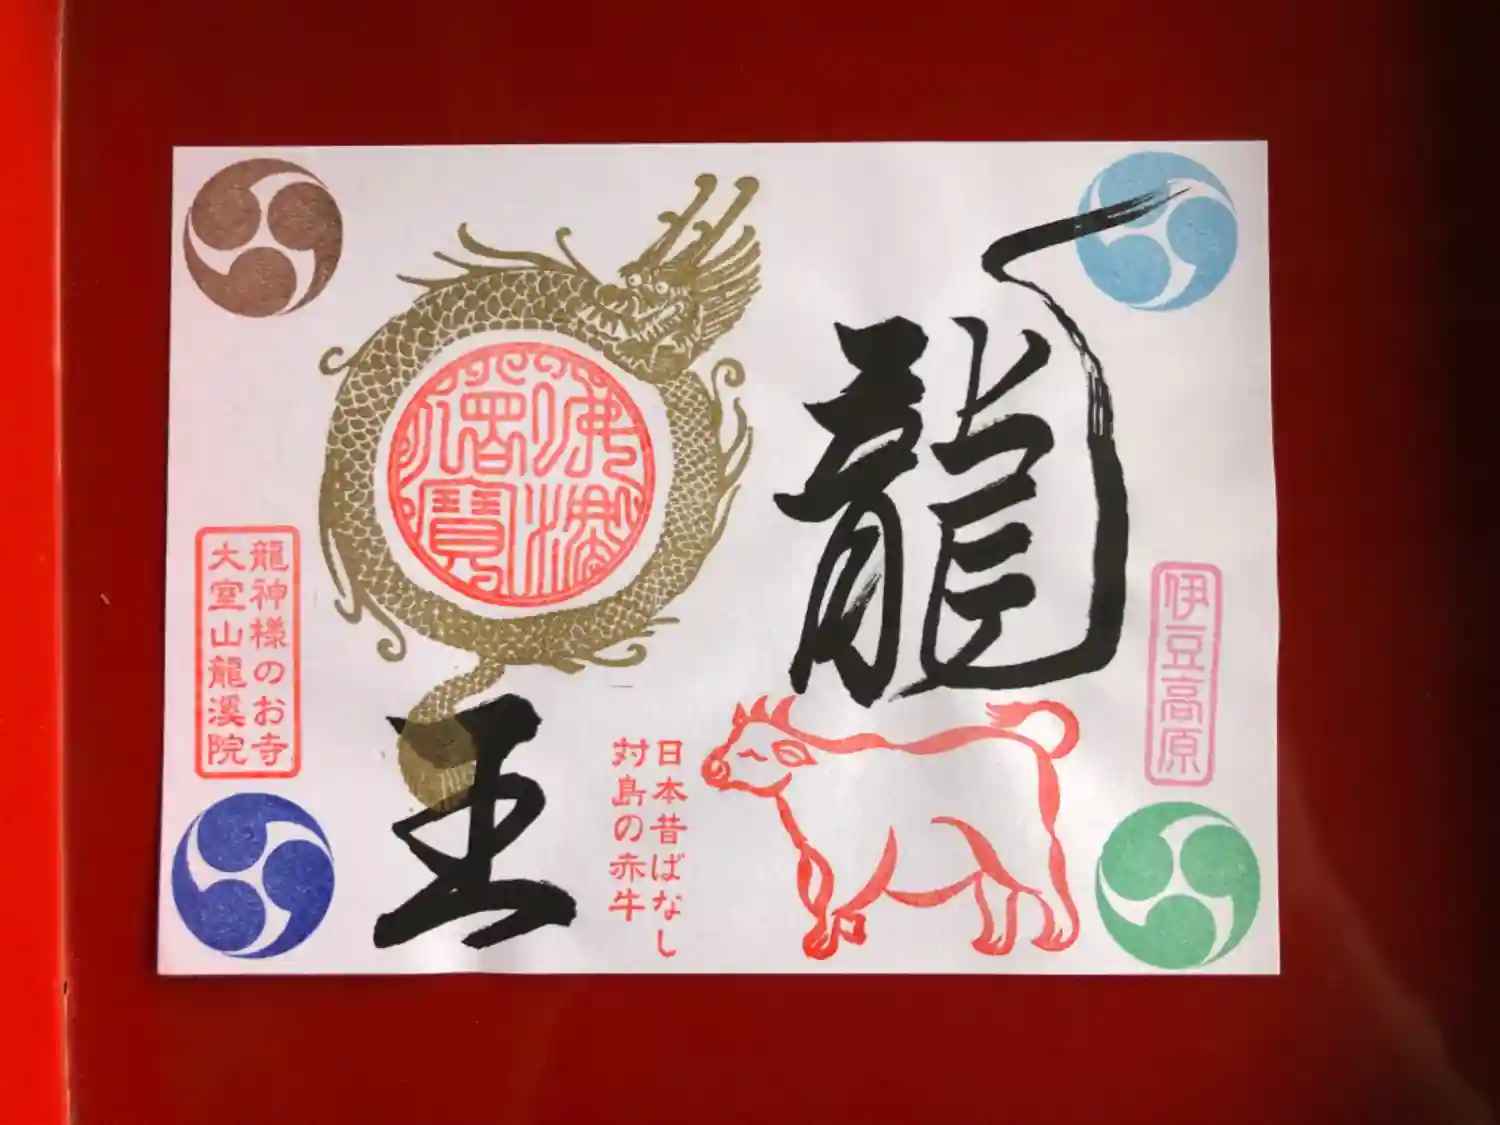 龍
王
伊豆高原
日本昔ばなし
対島の赤牛
佛法僧寳
龍神様のお寺
大室山龍溪院